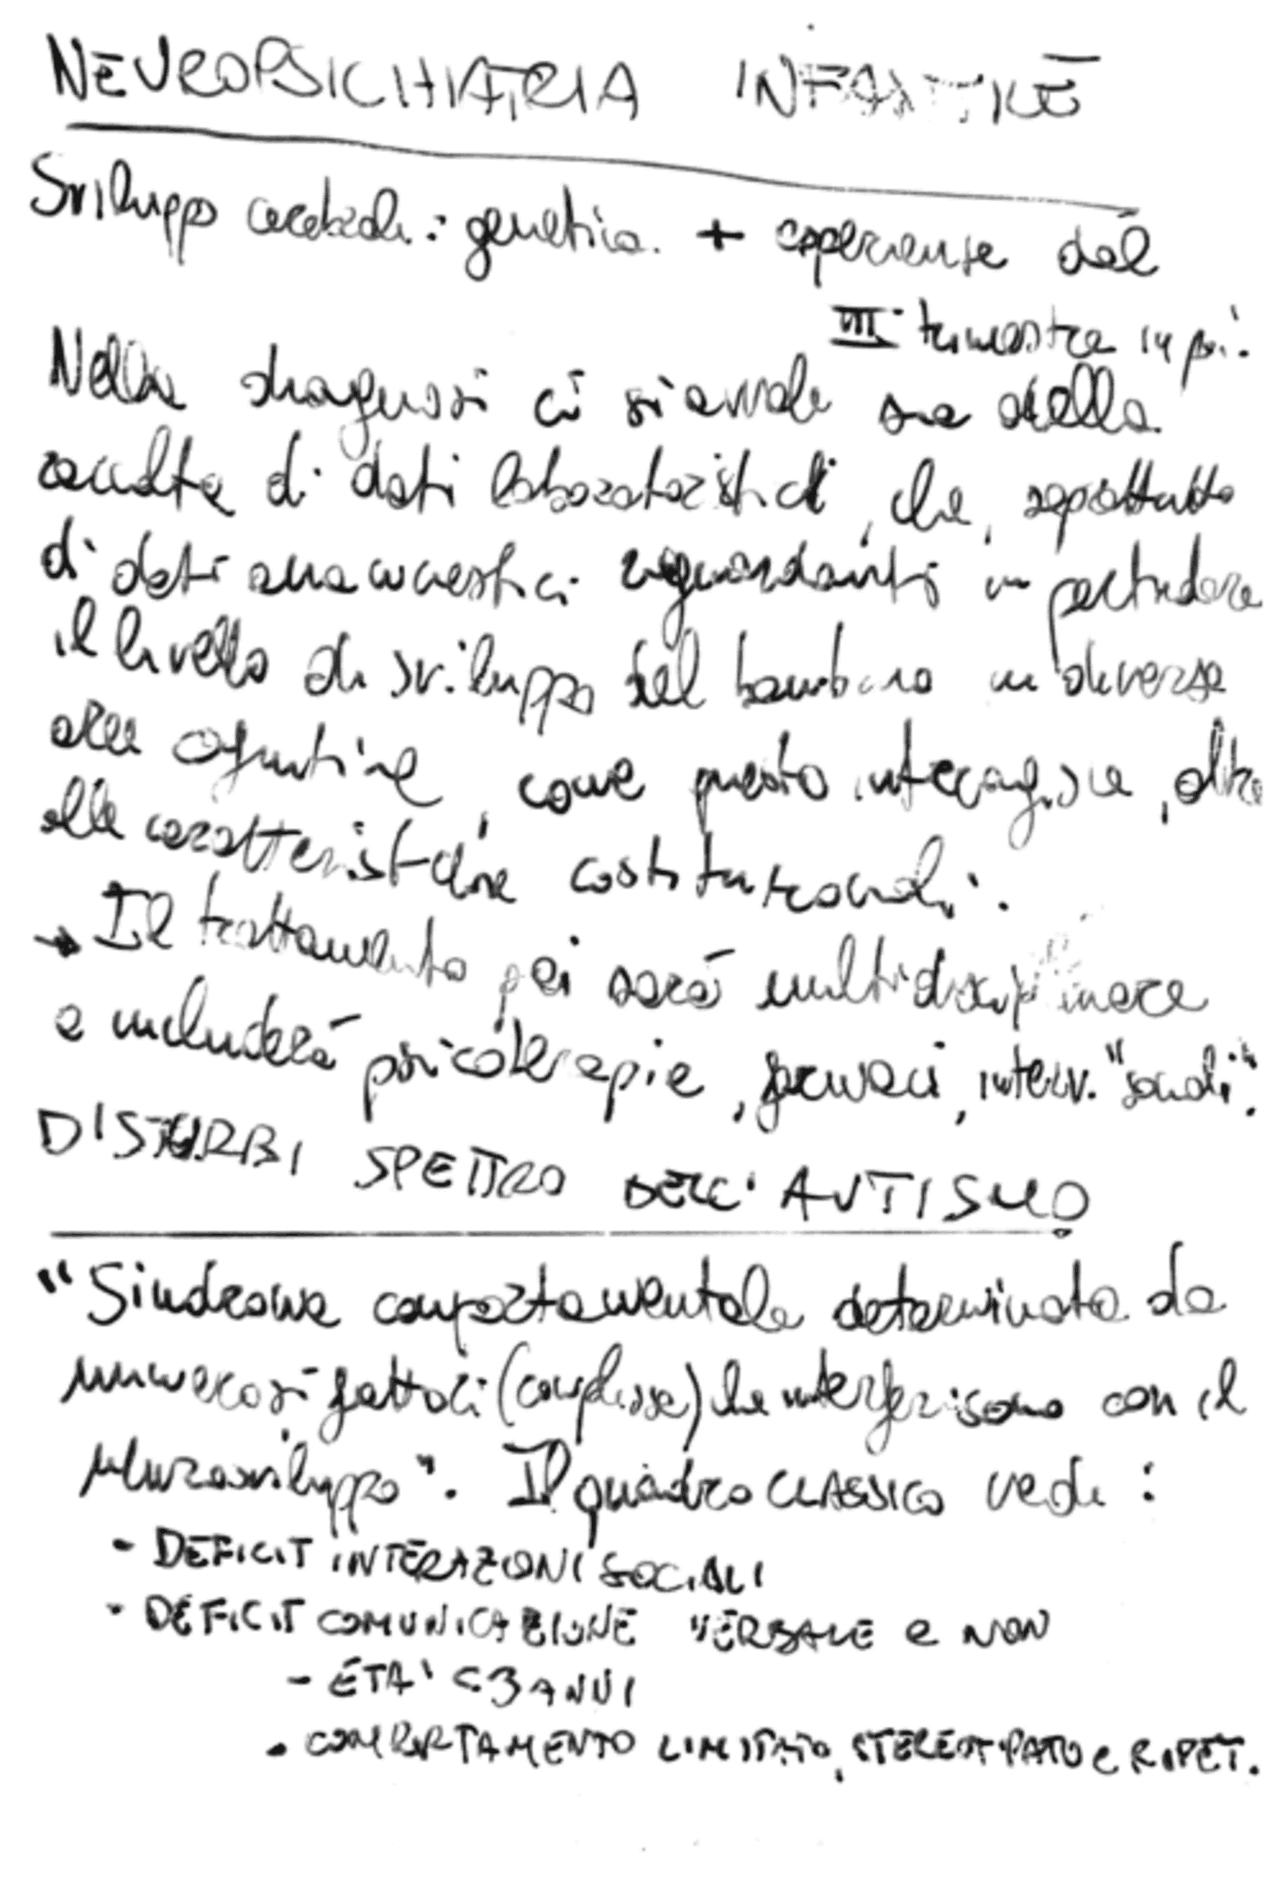 NEUROPSICHIATRIA INFANTILE
Sviluppo cerebrale: genetica + esperienze dal
III trimestre in poi.
Nella diagnosi ci si avvale sia della
raccolta di dati laboratoristici, che, soprattutto
di dati anamnestici riguardanti in particolare
il livello di sviluppo del bambino in diverse
aree cognitive, come questo interagisce, oltre
alle caratteristiche costituzionali.
→ Il trattamento poi sarà multidisciplinare
e includerà psicoterapie, farmaci, interv. "sociali".
DISTURBI SPETTRO DELL'AUTISMO
"Sindrome comportamentale determinata da
numerosi fattori (complessa) che interferiscono con il
neurosviluppo". Il quadro CLASSICO vede:
- DEFICIT INTERAZIONI SOCIALI
- DEFICIT COMUNICAZIONE VERBALE e NON
- ETA' <3 ANNI
- COMPORTAMENTO LIMITATO, STEREOTIPATO e RIPET.